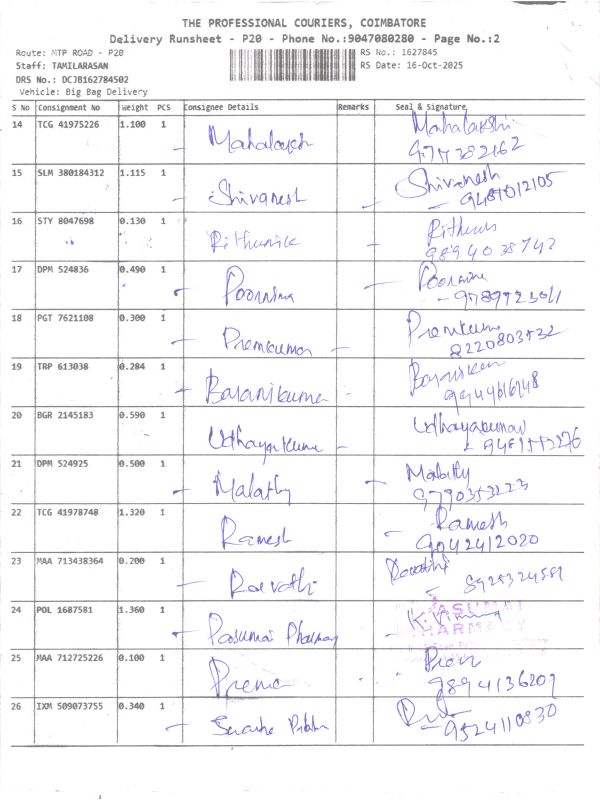 THE PROFESSIONAL COURIERS, COIMBATORE
Delivery Runsheet - P20 - Phone No.:9047080280 - Page No.:2
Route: MTP ROAD - P20
RS No.: 1627845
Staff: TAMILARASAN
RS Date: 16-Oct-2025
DRS No.: DCJB162784502
Vehicle: Big Bag Delivery
S No Consignment No Weight PCS Consignee Details Remarks Seal & Signature
14 TCG 41975226 1.100 1 Mahalakshi
15 SLM 380184312 1.115 1 Shivanesh Shivanesh
9487012105
16 STY 8047698 0.130 1 Rithunik
9894038742
17 DPM 524836 0.490 1 Poornima
18 PGT 7621108 0.300 1 Premkumar Premkumar
8220803532
19 TRP 613038 0.284 1 Baranikumar
20 BGR 2145183 0.590 1 Udhayakumar Udhayakumar
21 DPM 524925 0.500 1 Malathy Malathy
9790353223
22 TCG 41978748 1.320 1 Ramesh Ramesh
9042412020
23 MAA 713438364 0.200 1 Revathi Revathi
8925324589
24 POL 1687581 1.360 1 Pasumai Pharmacy
PASUMAI
PHARMACY
25 MAA 712725226 0.100 1 Prema Prem
9894136207
26 IXM 509073755 0.340 1
9524110830